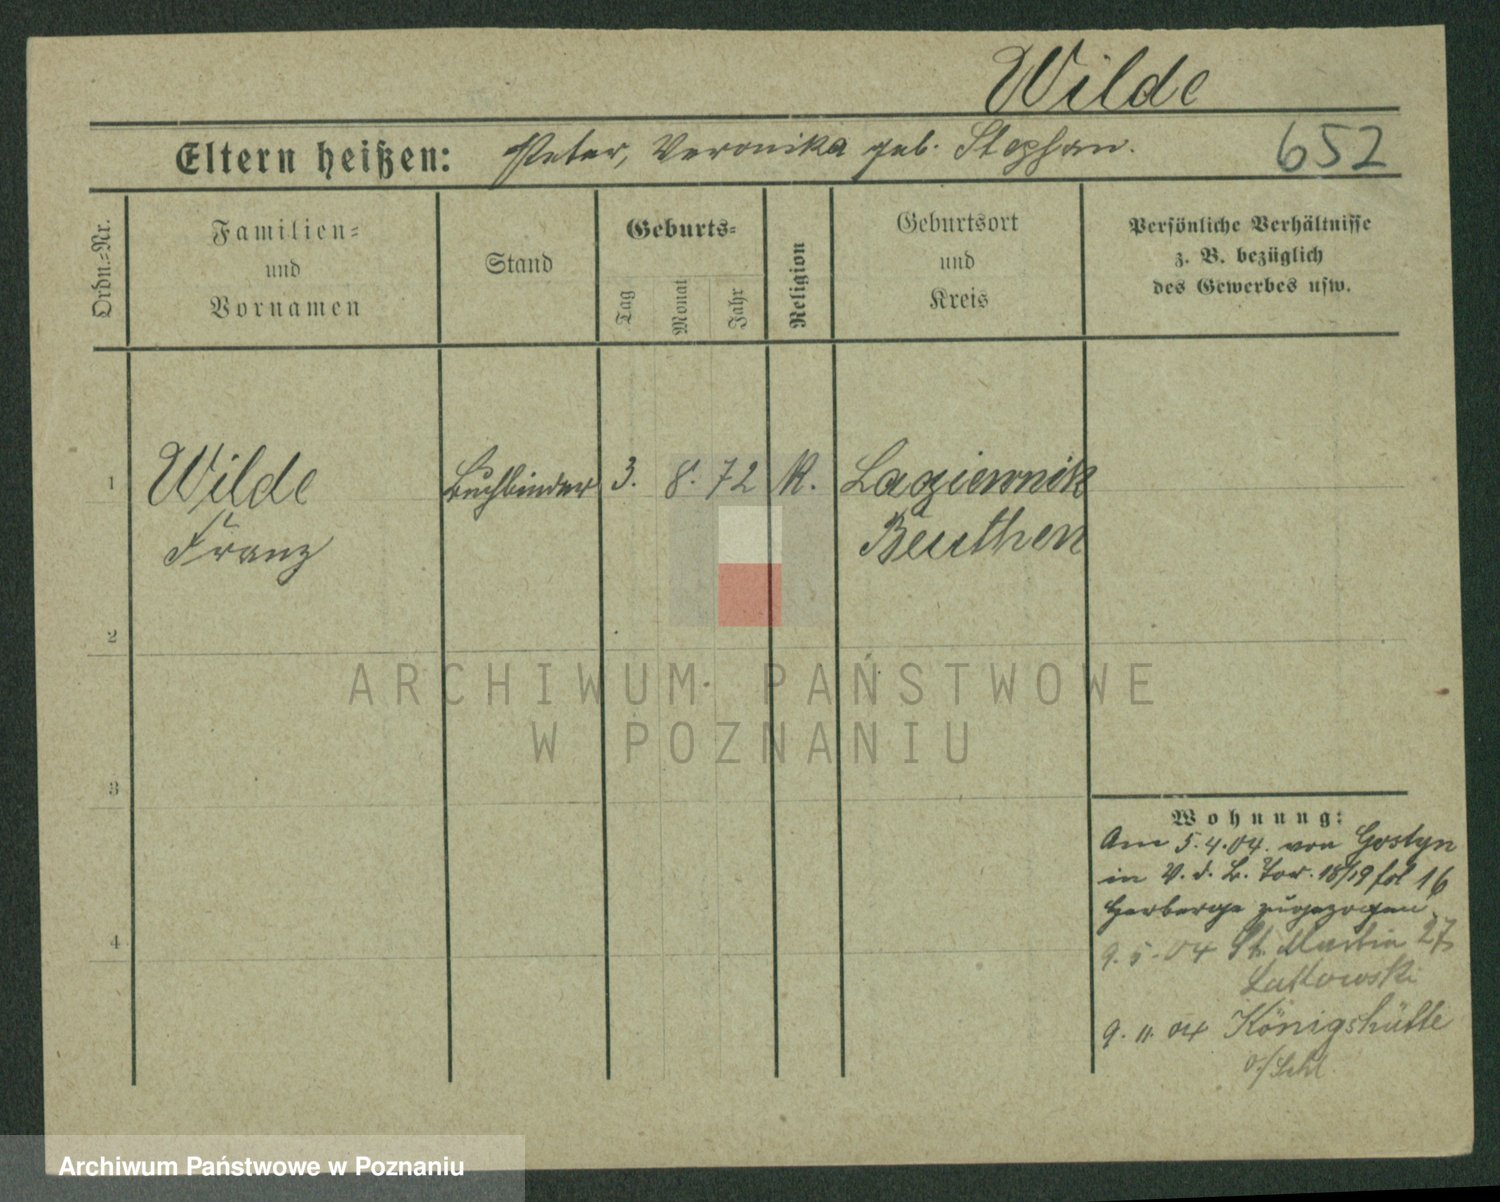 Wilde
Eltern heißen: Peter, Veronika geb. Stephan.
652
Ordn.=Nr.
Familien=
und
Vornamen
Stand
Geburts=
Tag
Monat
Jahr
Religion
Geburtsort
und
Kreis
Persönliche Verhältnisse
z. B. bezüglich
des Gewerbes usw.
1 Wilde Buchbinder 3. 8. 72 K. Lagiewnik
Franz Beuthen
2
ARCHIWUM PAŃSTWOWE
W POZNANIU
3
Wohnung:
Am 5.4.04. von Gostyn
in V. d. B. Tor. 18/19 fol 16
Herberge zugezogen
4
9. 5. 04 St. Martin 27
9. 11. 04 Königshütte
o/Schl.
Archiwum Państwowe w Poznaniu